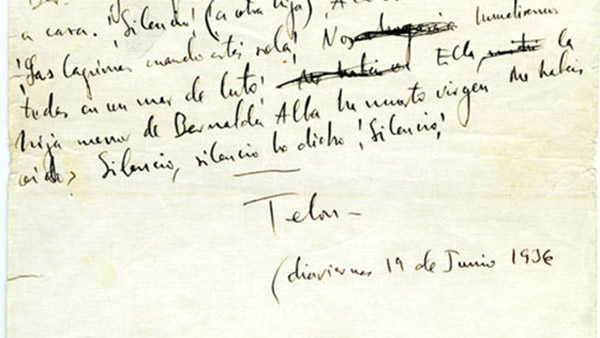 a cara. ¡Silencio! (a otra hija)
¡Las lagrimas cuando estés sola! Nos hundiremos
todas en un mar de luto! Ella, la
hija menor de Bernalda Alba ha muerto virgen Me habeis
oido? Silencio, silencio he dicho ¡Silencio!
Telon -
(dia viernes 19 de Junio 1936